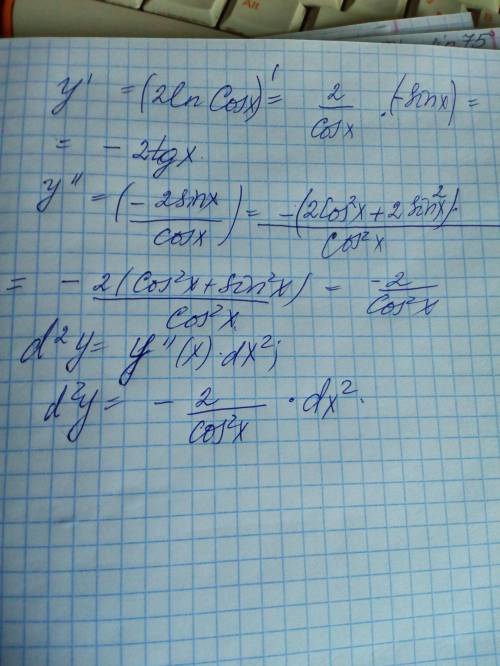 y' = (2ln Cosx)' = 2/Cosx · (-sinx) =
= - 2tgx.
y'' = (- 2sinx/cosx) = -(2Cos²x + 2 Sin²x)/Cos²x
= - 2(Cos²x + Sin²x)/Cos²x = -2/Cos²x
d²y = y''(x) · dx²;
d²y = - 2/Cos²x · dx².